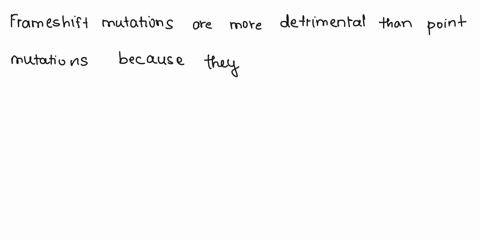 Frameshift mutations are more detrimental than point
mutations because they